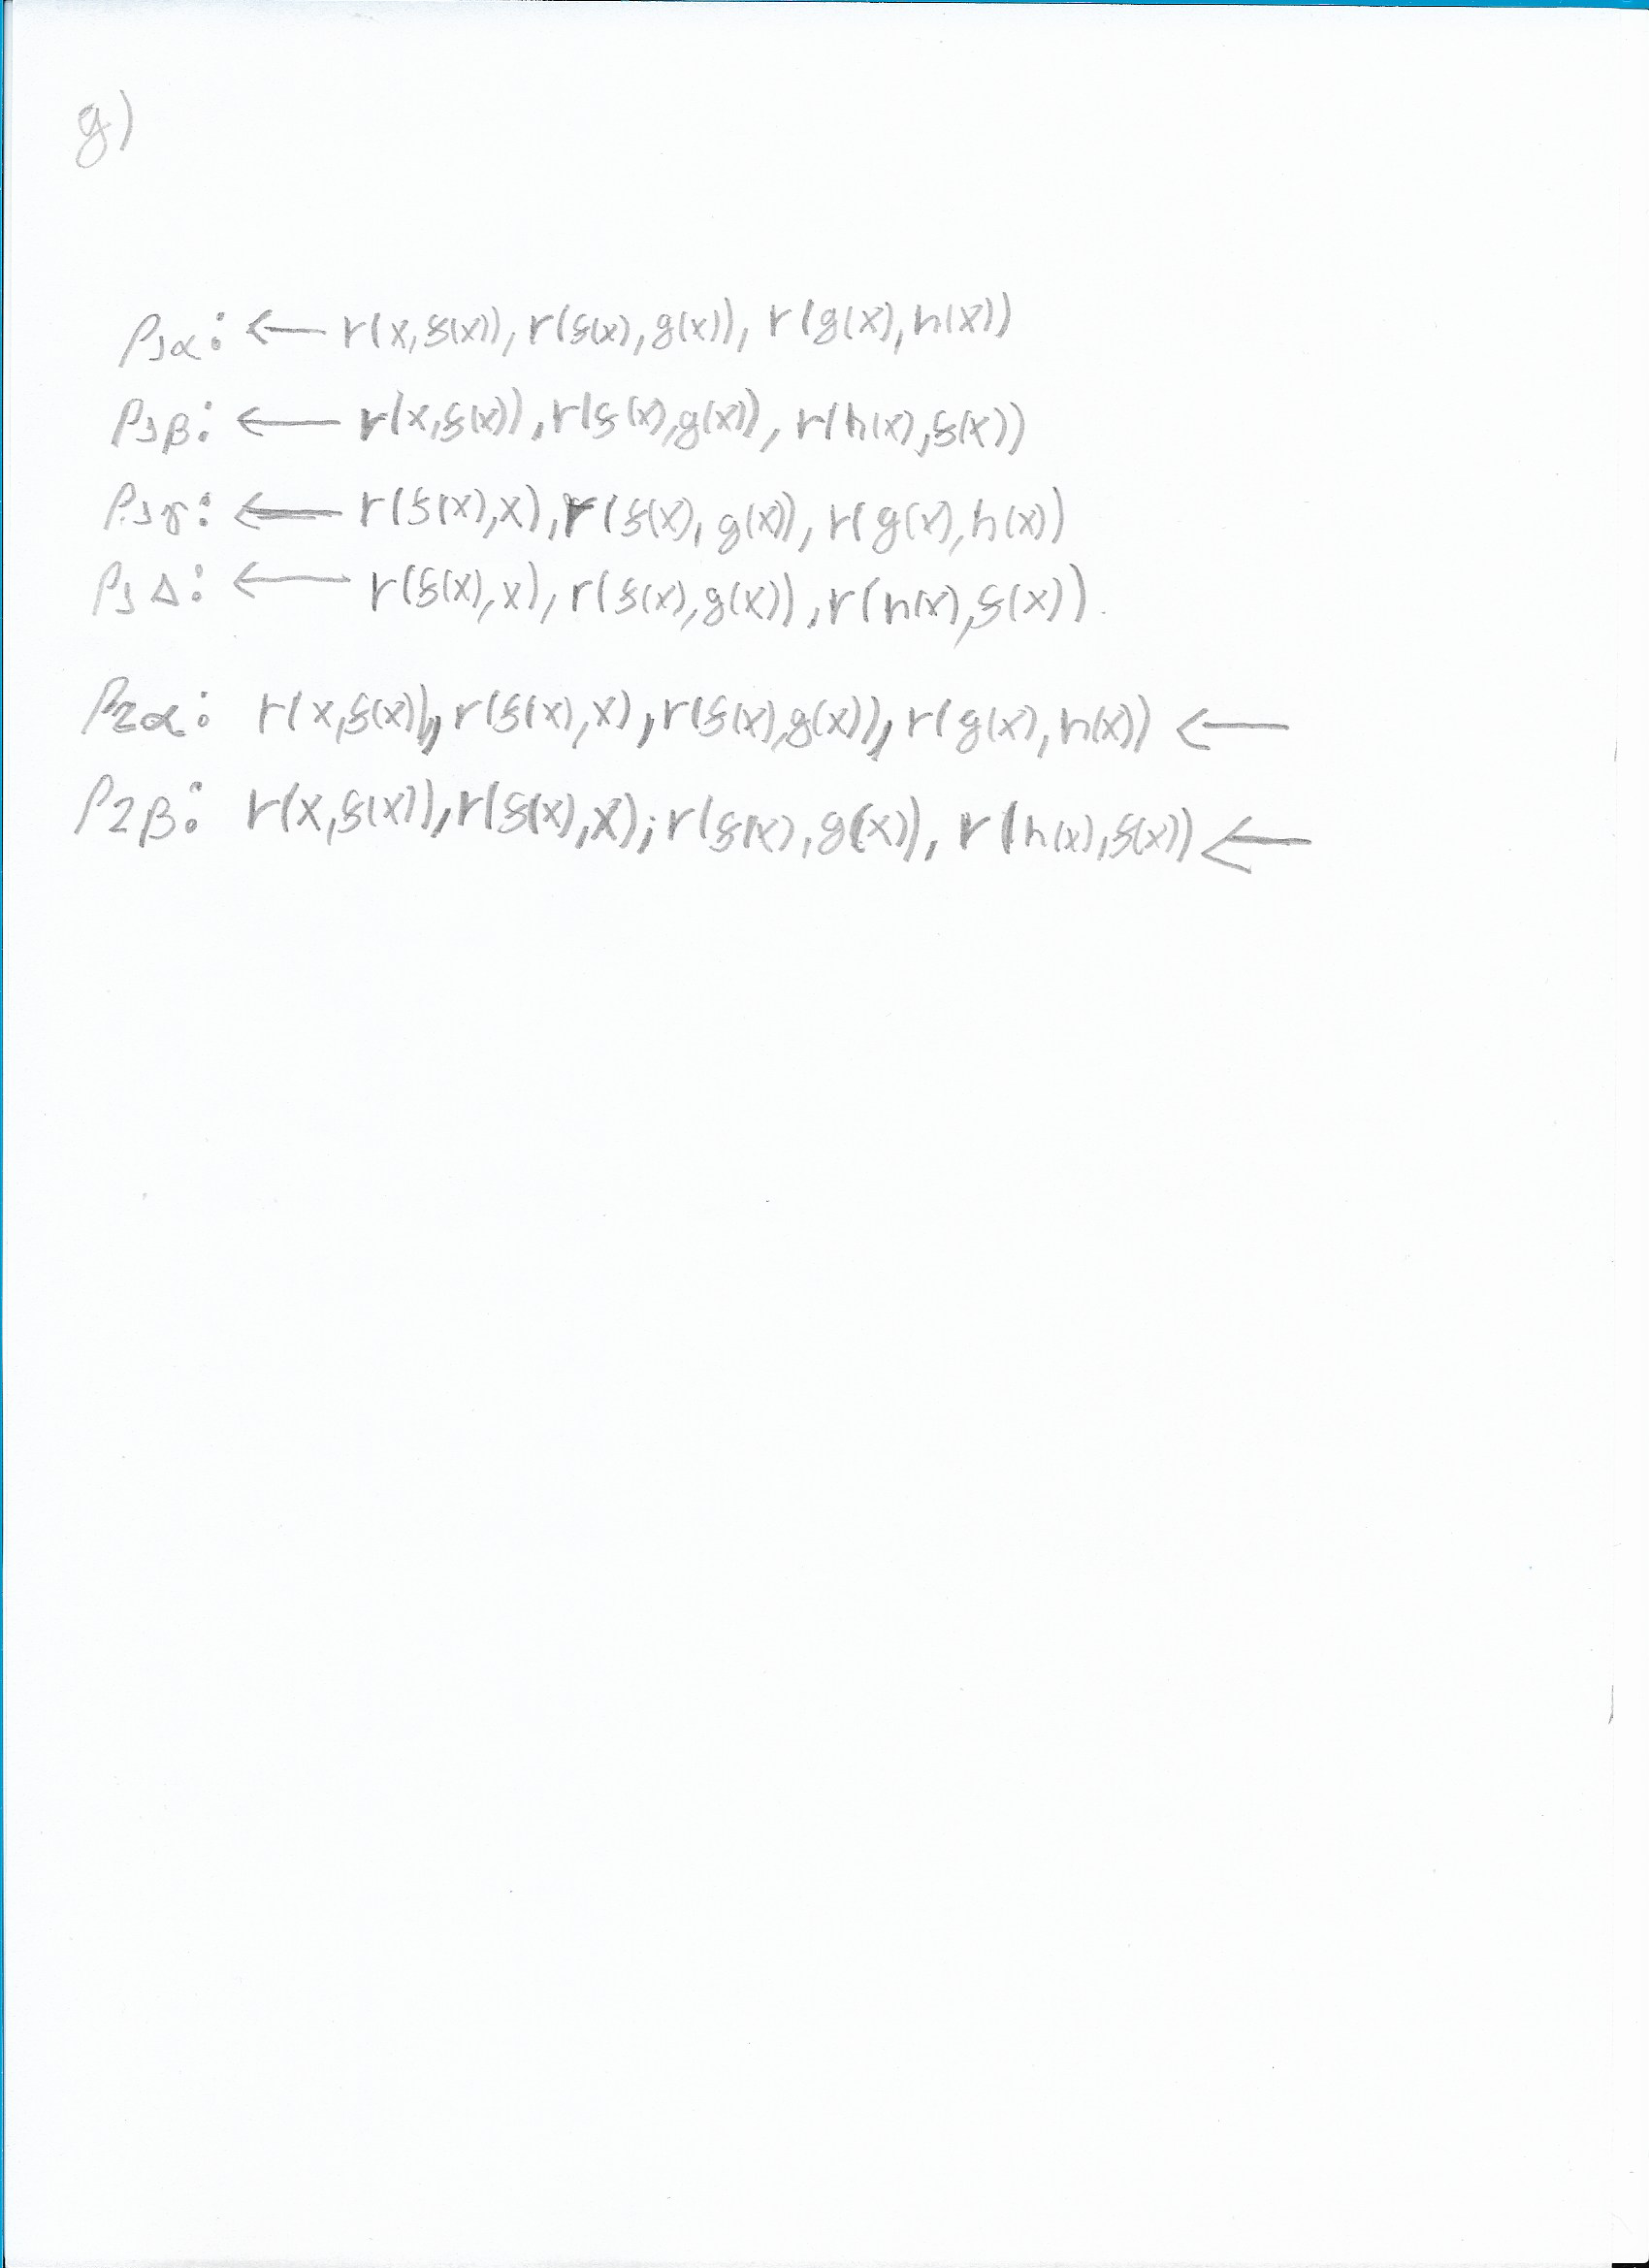 g)
ρ1α: ← r(x,f(x)), r(f(x),g(x)), r(g(x),h(x))
ρ1β: ← r(x,f(x)), r(f(x),g(x)), r(h(x),f(x))
ρ1γ: ← r(f(x),x), r(f(x),g(x)), r(g(x),h(x))
ρ1Δ: ← r(f(x),x), r(f(x),g(x)), r(h(x),f(x)).
ρ2α: r(x,f(x)), r(f(x),x), r(f(x),g(x)), r(g(x),h(x)) ←
ρ2β: r(x,f(x)), r(f(x),x); r(f(x),g(x)), r(h(x),f(x)) ←